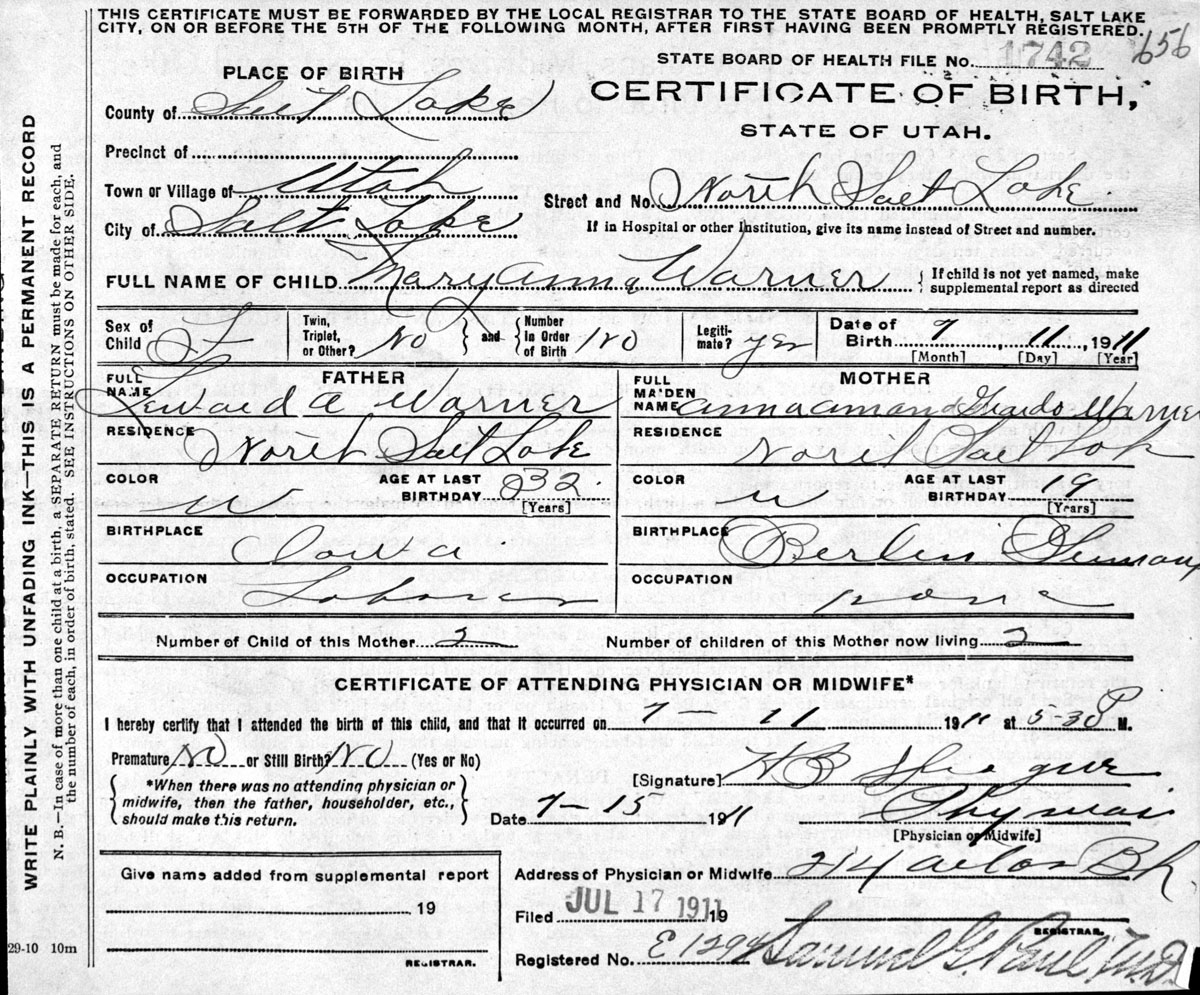 THIS CERTIFICATE MUST BE FORWARDED BY THE LOCAL REGISTRAR TO THE STATE BOARD OF HEALTH, SALT LAKE
CITY, ON OR BEFORE THE 5TH OF THE FOLLOWING MONTH, AFTER FIRST HAVING BEEN PROMPTLY REGISTERED.
656
STATE BOARD OF HEALTH FILE No. 1742
PLACE OF BIRTH
CERTIFICATE OF BIRTH,
STATE OF UTAH.
County of Salt Lake
Precinct of
Town or Village of Utah
Street and No. North Salt Lake
City of Salt Lake
If in Hospital or other Institution, give its name instead of Street and number.
FULL NAME OF CHILD Mary Anna Warner
If child is not yet named, make
supplemental report as directed
Sex of Child F
Twin, Triplet, or Other? No and Number In Order of Birth No
Legiti-mate? yes
Date of Birth 7, 11, 1911
[Month] [Day] [Year]
FATHER
FULL NAME Edward A Warner
RESIDENCE North Salt Lake
COLOR W AGE AT LAST BIRTHDAY 32
[Years]
BIRTHPLACE Iowa
OCCUPATION Laborer
MOTHER
FULL MAIDEN NAME Anna Warner
RESIDENCE North Salt Lak
COLOR W AGE AT LAST BIRTHDAY 19
[Years]
BIRTHPLACE Berlin Germany
OCCUPATION none
Number of Child of this Mother 2 Number of children of this Mother now living 2
CERTIFICATE OF ATTENDING PHYSICIAN OR MIDWIFE*
I hereby certify that I attended the birth of this child, and that it occurred on 7 11 1911 at 5:30 P M.
Premature? NO or Still Birth? NO (Yes or No)
*When there was no attending physician or
midwife, then the father, householder, etc.,
should make this return.
[Signature] H B
Date 7-15 1911
[Physician or Midwife]
Address of Physician or Midwife 214
Give name added from supplemental report
19
REGISTRAR.
Filed JUL 17 1911 19
REGISTRAR.
Registered No. E1294 Samuel G. Paul, M.D.
WRITE PLAINLY WITH UNFADING INK—THIS IS A PERMANENT RECORD
N. B.—In case of more than one child at a birth, a SEPARATE RETURN must be made for each, and
the number of each, in order of birth, stated. SEE INSTRUCTIONS ON OTHER SIDE.
29-10 10m